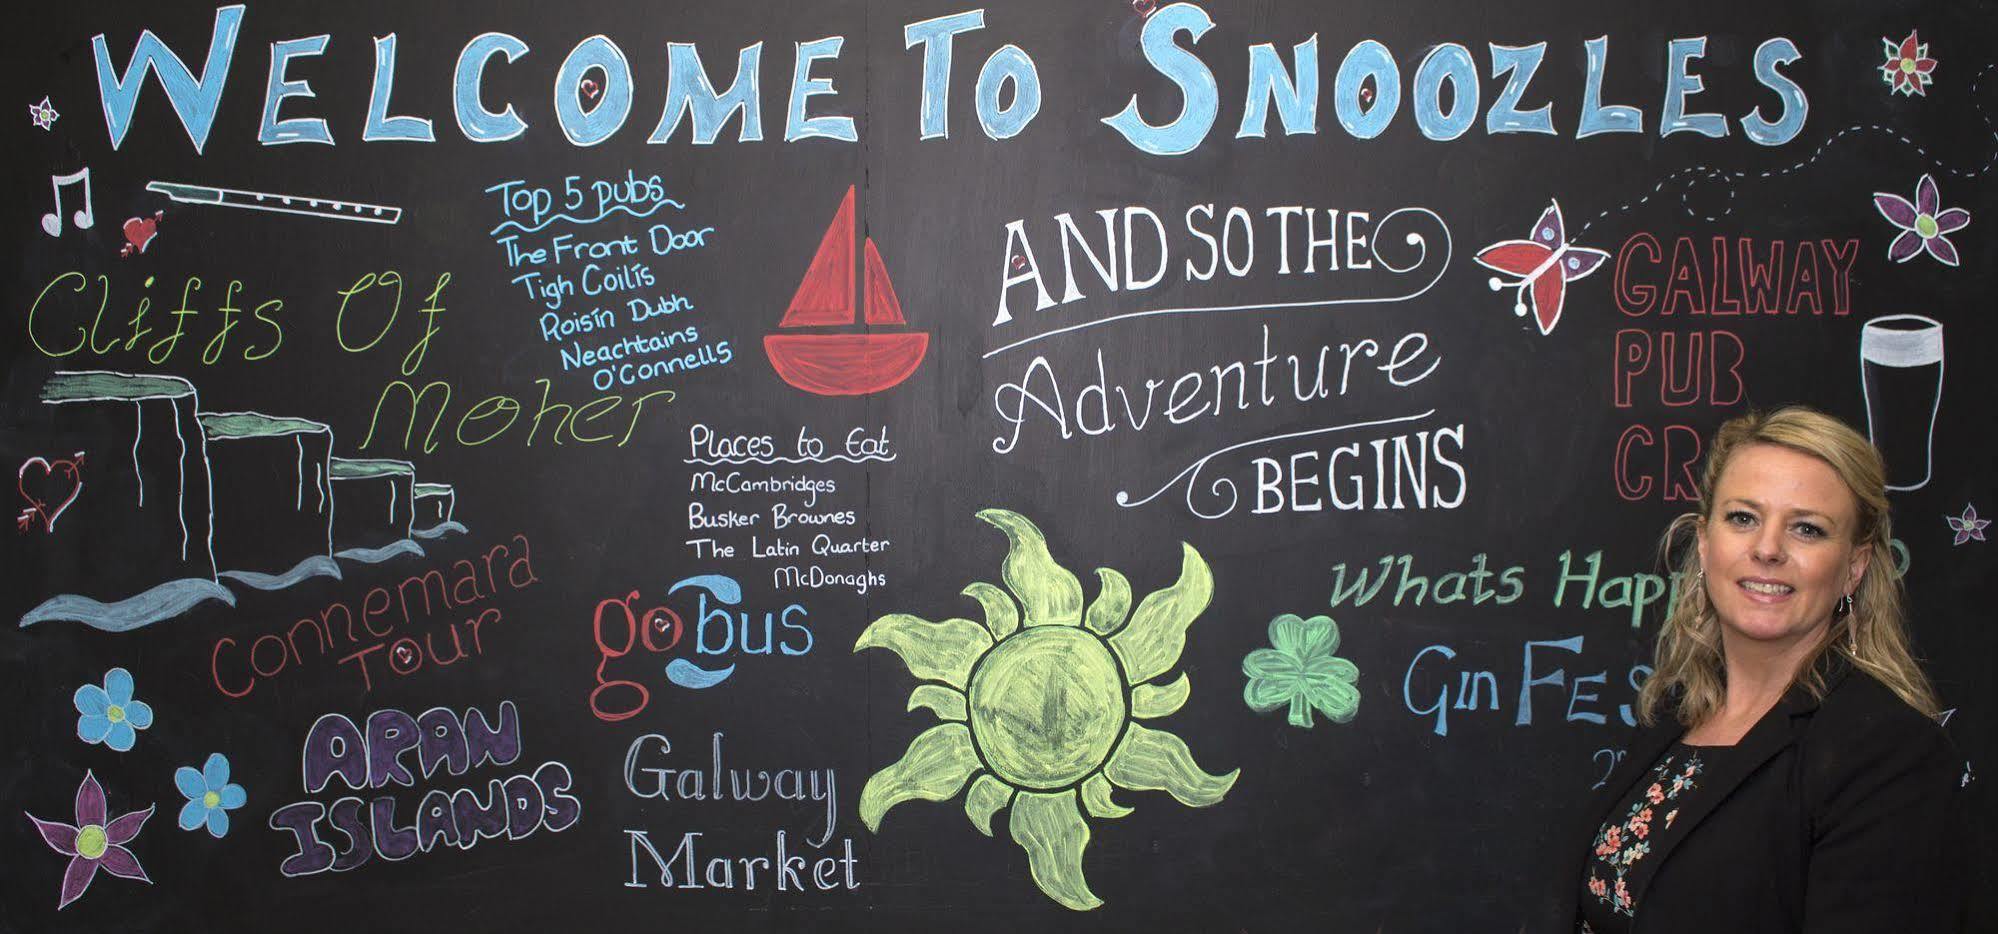 WELCOME TO SNOOZLES
Top 5 pubs
The Front Door
Tigh Coilís
Roisín Dubh
Neachtains
O'Connells
Cliffs Of
Moher
Places to Eat
McCambridges
Busker Brownes
The Latin Quarter
McDonaghs
Connemara
Tour
gobus
ARAN
ISLANDS
Galway
Market
AND SO THE
Adventure
BEGINS
GALWAY
PUB
CR
Whats Happ
Gin Fes